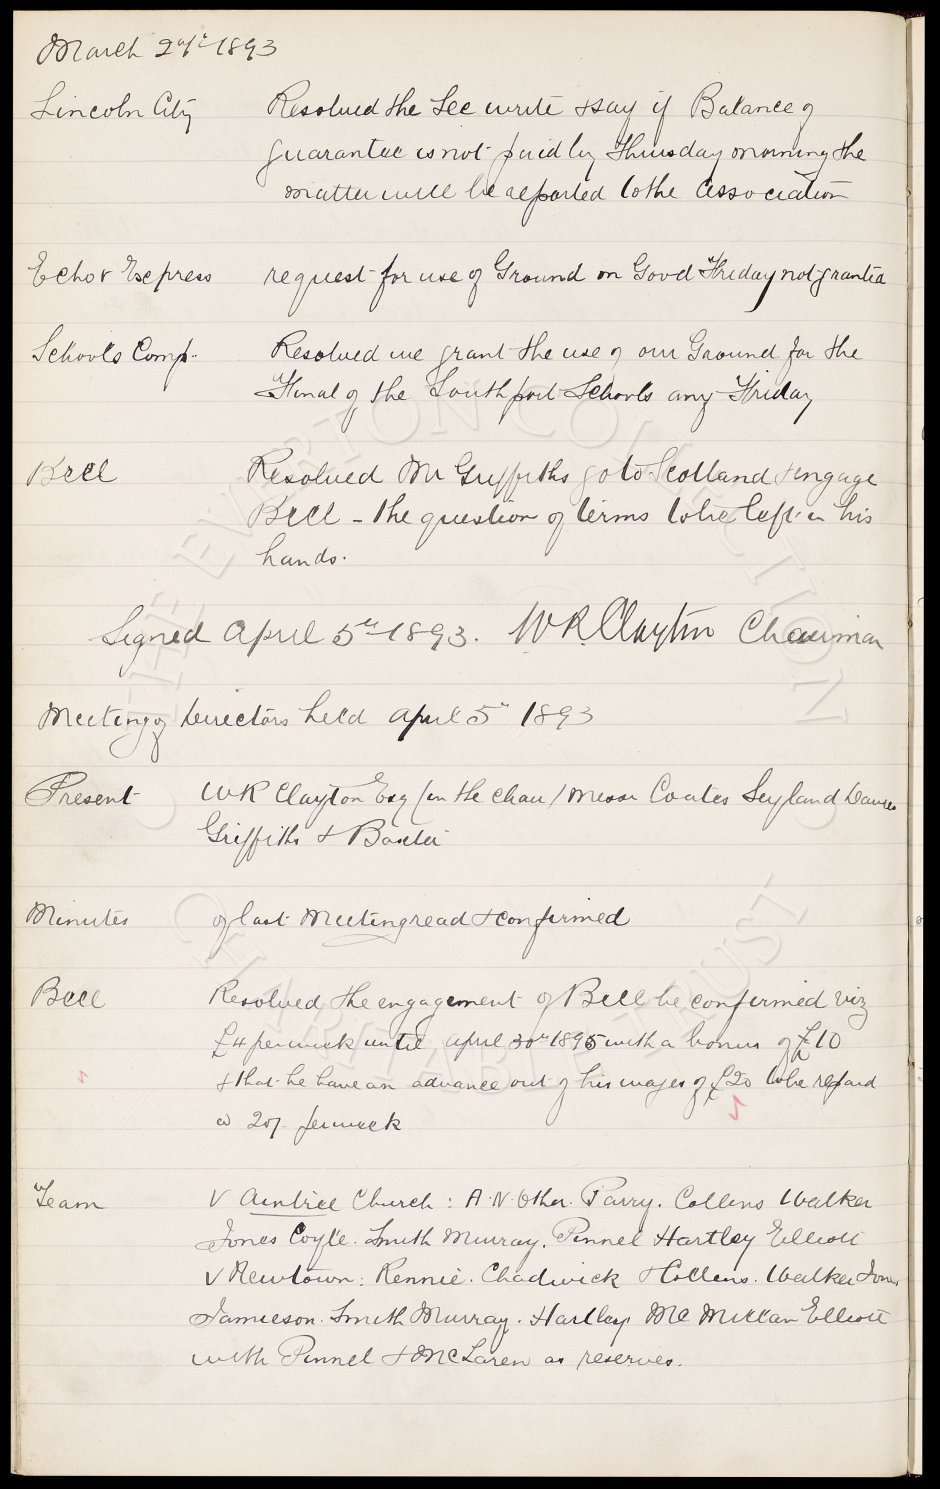 March 29th 1893
Lincoln City Resolved the Sec write & say if Balance of
guarantee is not paid by Thursday morning the
matter will be reported to the Association
Echo & Express request for use of Ground on Good Friday not granted
Schools Comp. Resolved we grant the use of our Ground for the
Final of the Southport Schools any Friday
Bell Resolved Mr Griffiths go to Scotland & engage
Bell - the question of terms to be left in his
hands.
Signed April 5th 1893. W R Clayton Chairman
Meeting of Directors held April 5th 1893
Present W R Clayton Esq (in the chair) Messrs Coates Leyland Davies
Griffiths & Baxter
Minutes of last Meeting read & confirmed
Bell Resolved the engagement of Bell be confirmed viz
£4 per week until April 30th 1895 with a bonus of £10
& that he have an advance out of his wages of £20 to be repaid
@ 20/- per week
Team V Aintree Church: A. N. Other. Parry. Collins Walker
Jones Coyle. Smith Murray. Pinnel Hartley Elliott
V Newtown: Rennie. Chadwick & Collins. Walker Jones
Jamieson. Smith Murray. Hartley McMillan Elliott
with Pinnel & McLaren as reserves.
© THE EVERTON COLLECTION CHARITABLE TRUST